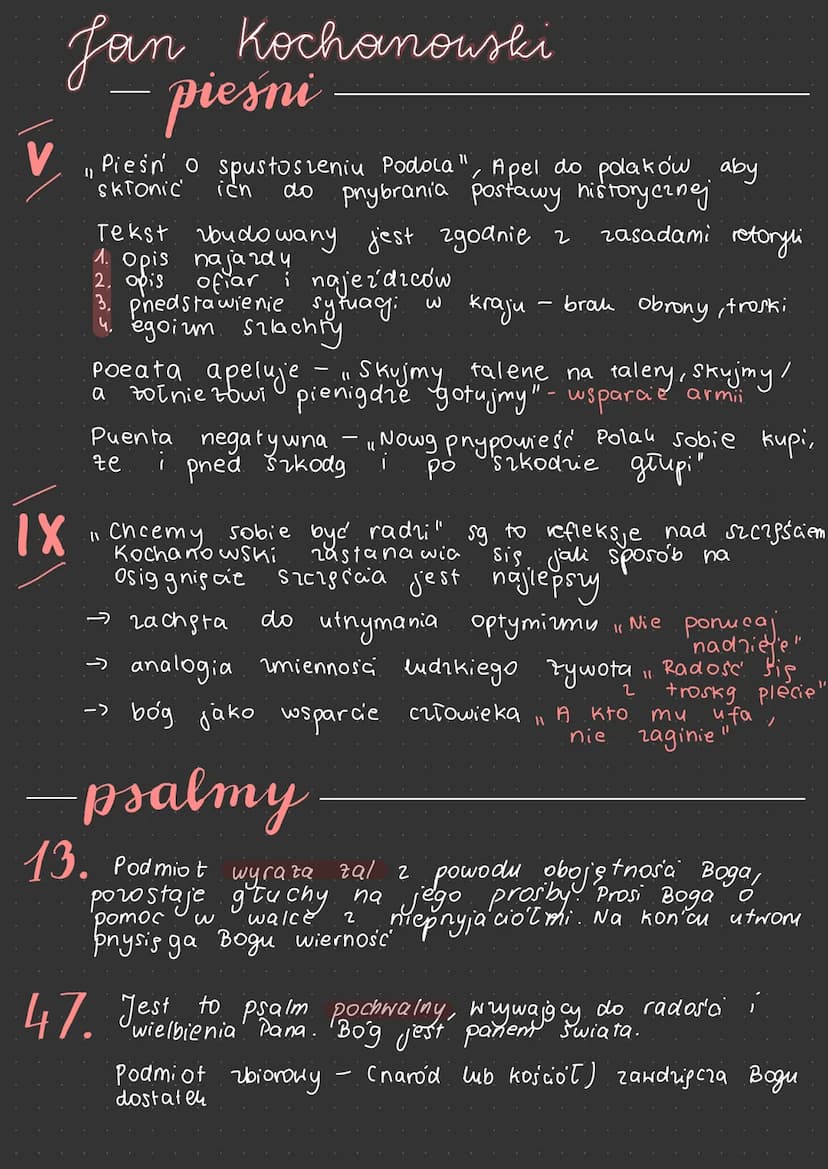 Jan Kochanowski
pieśni
V
„Pieśń o spustoszeniu Podola", Apel do polaków aby
skłonić ich do przybrania postawy historycznej
Tekst zbudowany jest zgodnie z zasadami retoryki
1. opis najazdu
2. opis ofiar i najeźdźców
3. przedstawienie sytuacji w kraju – brak obrony, troski
4. egoizm szlachty
Poeata apeluje – „Skujmy talerze na talery, skujmy /
a żołnierzowi pieniądze gotujmy" - wsparcie armii
Puenta negatywna – „Nową przypowieść Polak sobie kupi,
że i przed szkodą i po szkodzie głupi"
IX
„Chcemy sobie być radzi" są to refleksje nad szczęściem
Kochanowski zastanawia się jaki sposób na
osiągnięcie szczęścia jest najlepszy
→ zachęta do utrzymania optymizmu „Nie porzucaj
nadzieje"
→ analogia zmienności ludzkiego żywota „Radość się
z troską plecie"
→ bóg jako wsparcie człowieka „A kto mu ufa,
nie zaginie"
psalmy
13. Podmiot wyraża żal z powodu obojętności Boga,
pozostaje głuchy na jego prośby. Prosi Boga o
pomoc w walce z nieprzyjaciółmi. Na końcu utworu
przysięga Bogu wierność
47. Jest to psalm pochwalny, wzywający do radości i
wielbienia Pana. Bóg jest panem świata.
Podmiot zbiorowy – (naród lub kościół) zawdzięcza Bogu
dostatek